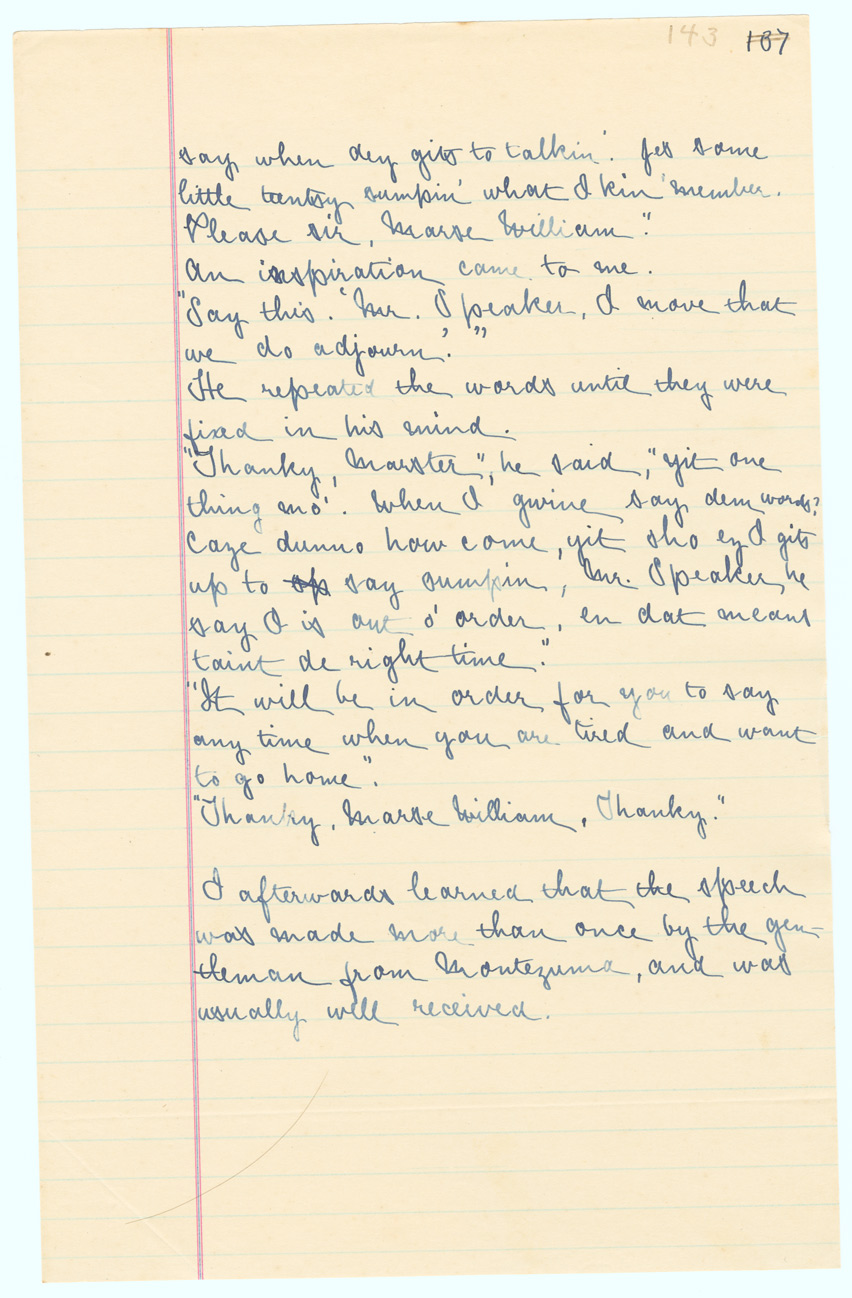 143 187
say when dey gits to talkin'. Jes some
little teentsy sumpin' what I kin 'member.
Please sir, Marse William."
An inspiration came to me.
"Say this. 'Mr. Speaker, I move that
we do adjourn'."
He repeated the words until they were
fixed in his mind.
"Thanky, Marster", he said, "yit one
thing mo'. When I gwine say dem words?
Caze dunno how come, yit sho ez I gits
up to say sumpin, Mr. Speaker, he
say I is out o' order, en dat means
taint de right time."
"It will be in order for you to say
any time when you are tired and want
to go home".
"Thanky, Marse William, Thanky."
I afterwards learned that the speech
was made more than once by the gen-
tleman from Montezuma, and was
usually well received.